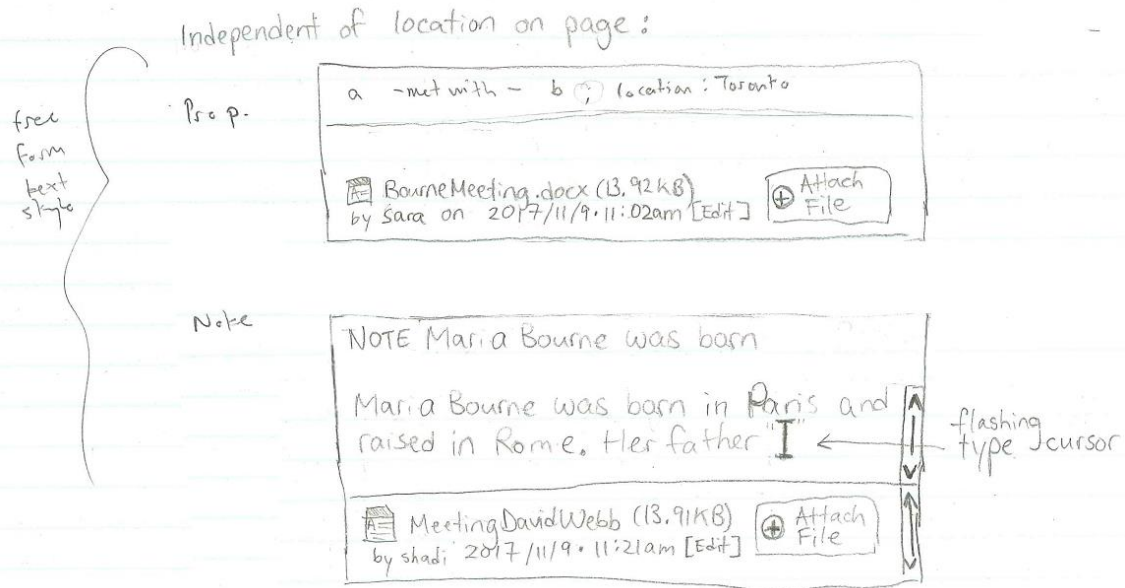 Independent of location on page:
free
form
text
style
Prop.
a -met with- b ; location: Toronto
BourneMeeting.docx (13.92KB)
by Sara on 2017/11/9 • 11:02am [Edit]
Attach
File
Note
NOTE Maria Bourne was born
Maria Bourne was born in Paris and
raised in Rome. Her father "I"
flashing
type cursor
MeetingDavidWebb (13.91KB)
by shadi 2017/11/9 • 11:21am [Edit]
Attach
File